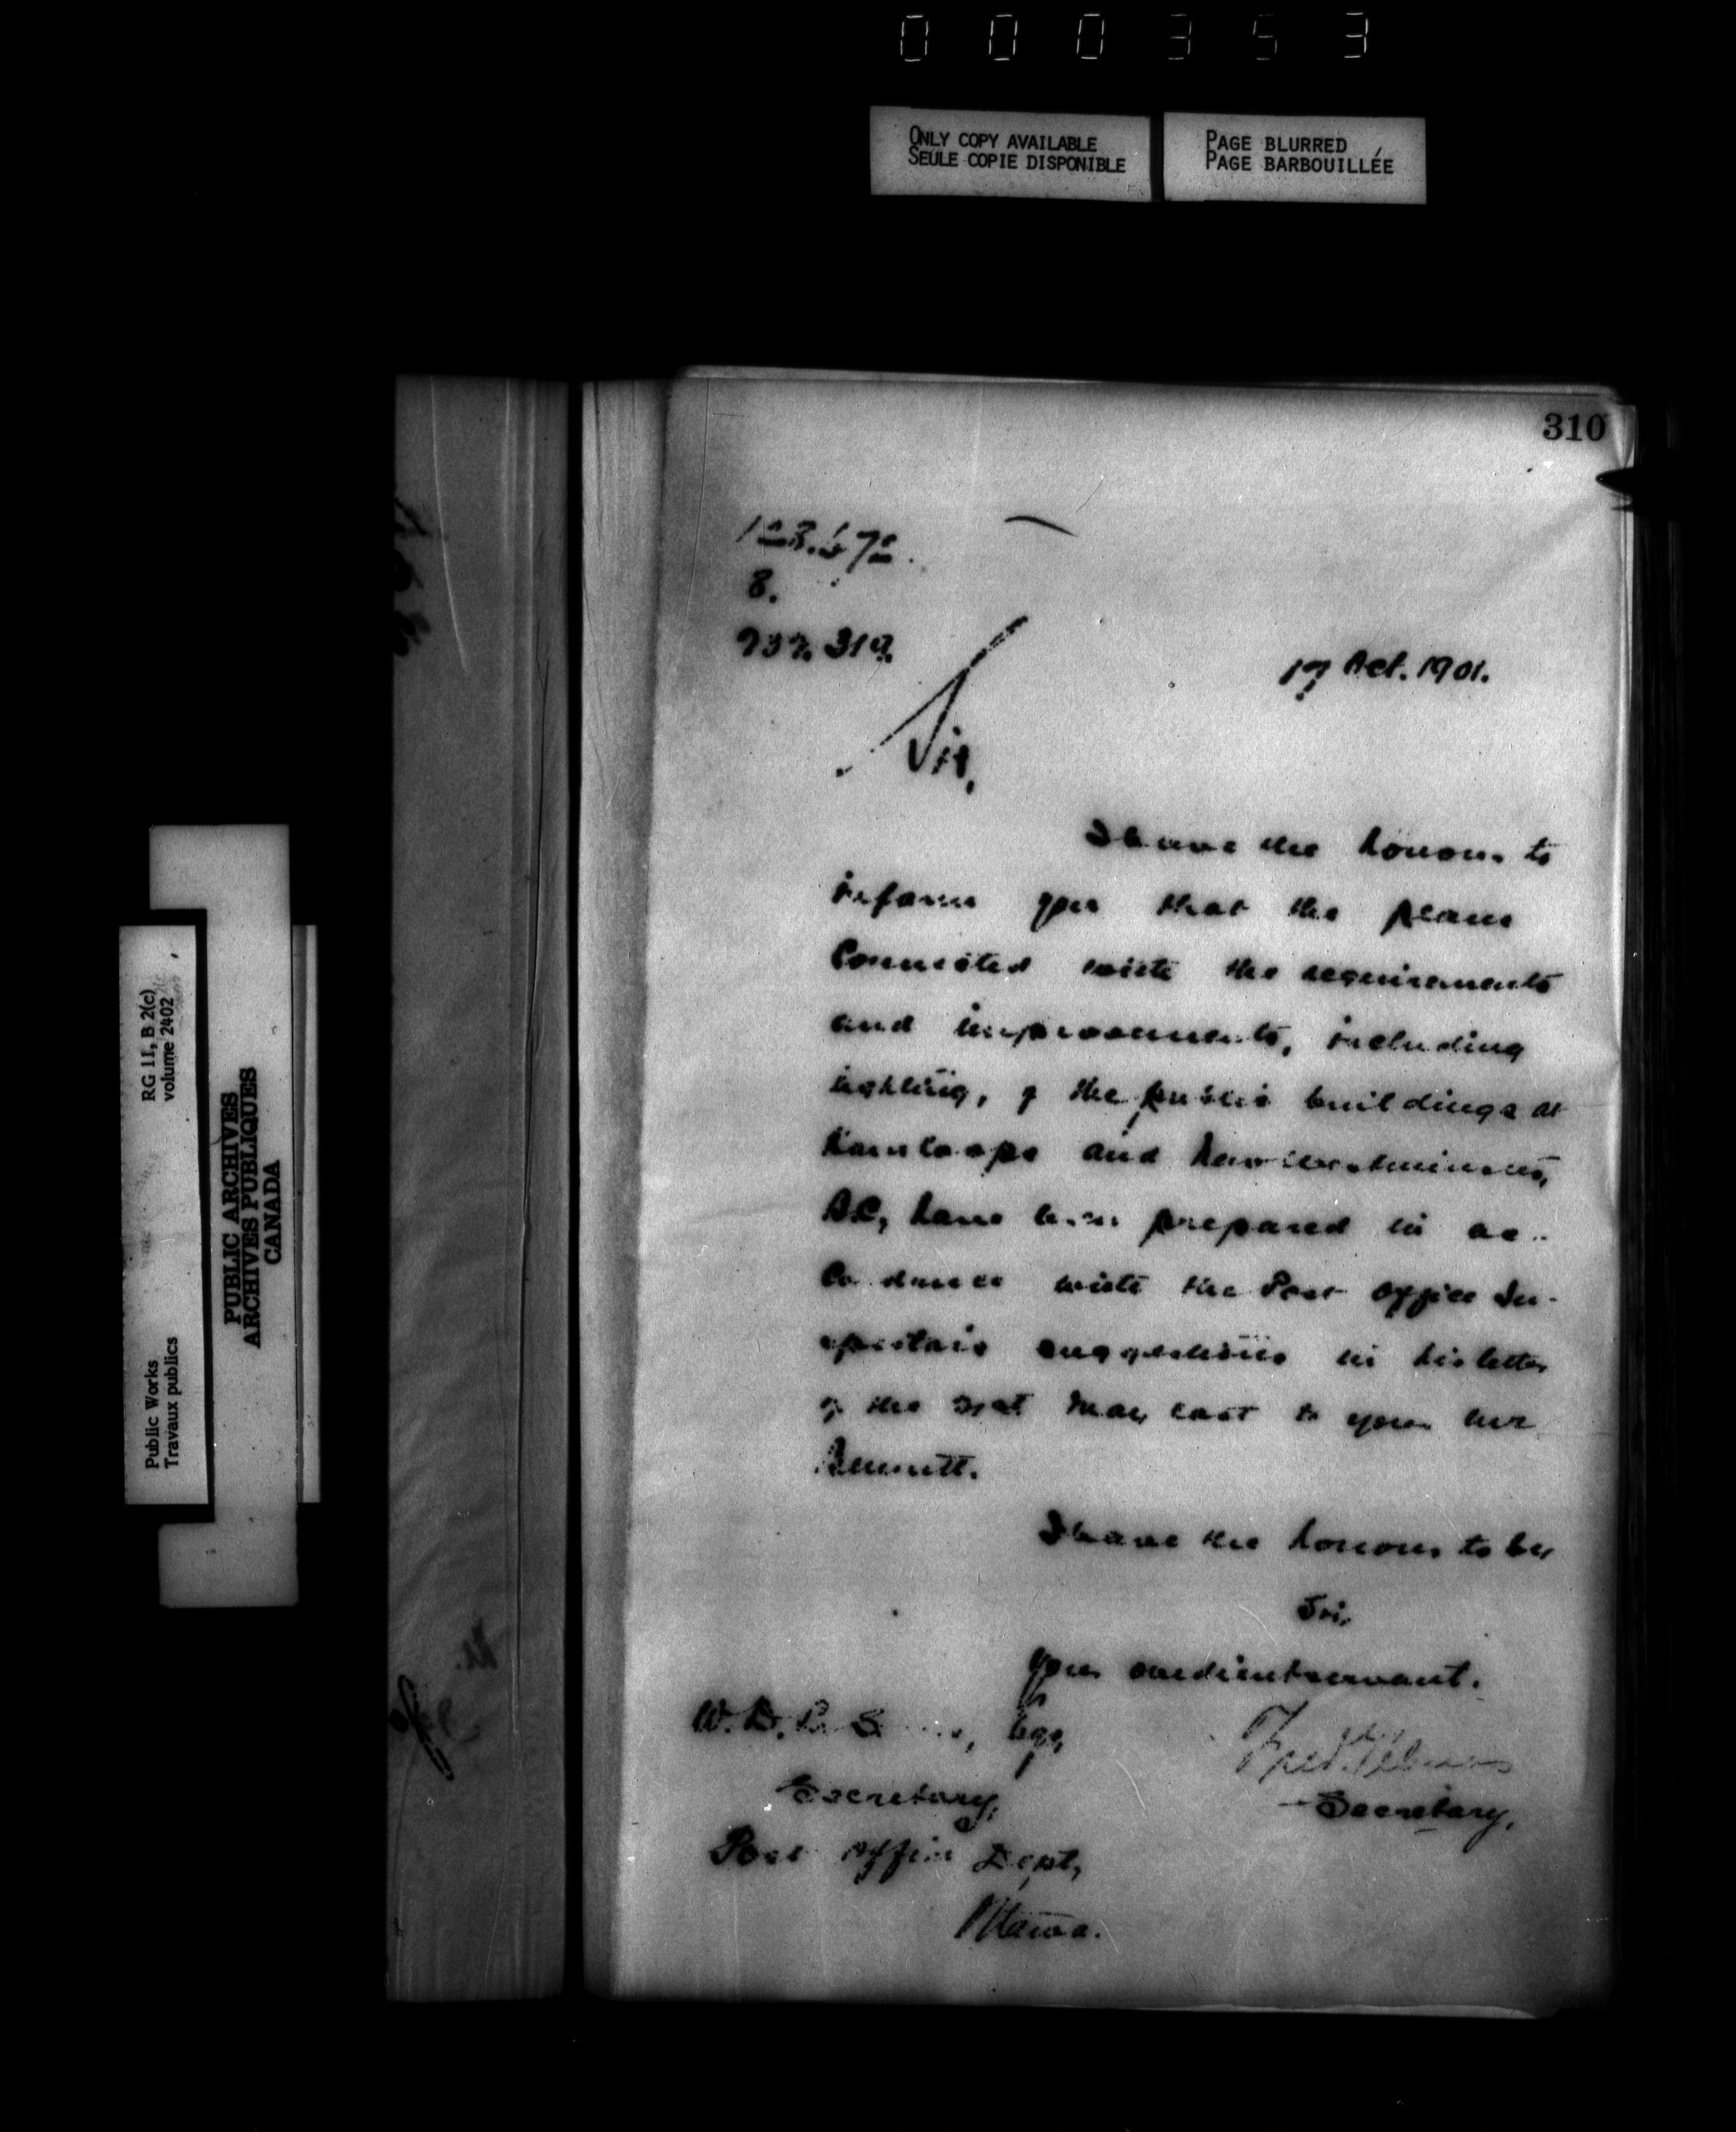 000353
ONLY COPY AVAILABLE
SEULE COPIE DISPONIBLE
PAGE BLURRED
PAGE BARBOUILLÉE
310
8.
17 Oct. 1901.
Sir,
I have the honour to
inform you that the plans
connected with the requirements
and improvements, including
lighting, of the public buildings at
Kamloops and New Westminster,
B.C., have been prepared in ac-
cordance with the Post Office In-
spector's suggestions in his letter
of the May last to your Mr
Bennett.
I have the honour to be,
Sir,
Your obedient servant.
W. D. Esq,
Secretary,
Post Office Dept,
Ottawa.
Fred. Gélinas
Secretary.
RG 11, B 2(c)
volume 2402
Public Works
Travaux publics
PUBLIC ARCHIVES
ARCHIVES PUBLIQUES
CANADA